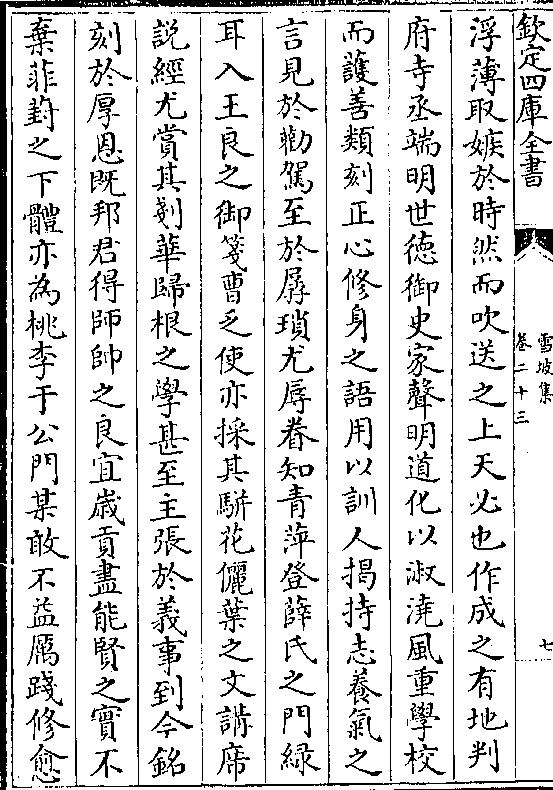 欽定四庫全書
雪坡集
卷二十三
七
浮薄取嫉於時然而吹送之上天必也作成之有地判
府寺丞端明世徳御史家聲明道化以淑澆風重學校
而護善類刻正心修身之語用以訓人揭持志養氣之
言見於勸駕至於孱瑣尤辱眷知青萍登薛氏之門緑
耳入王良之御箋曹乏使亦採其駢花儷葉之文講席
説經尤賞其剝華歸根之學甚至主張於義事到今銘
刻於厚恩既邦君得師帥之良宜歳貢盡能賢之實不
棄菲葑之下體亦為桃李于公門某敢不益厲踐修愈